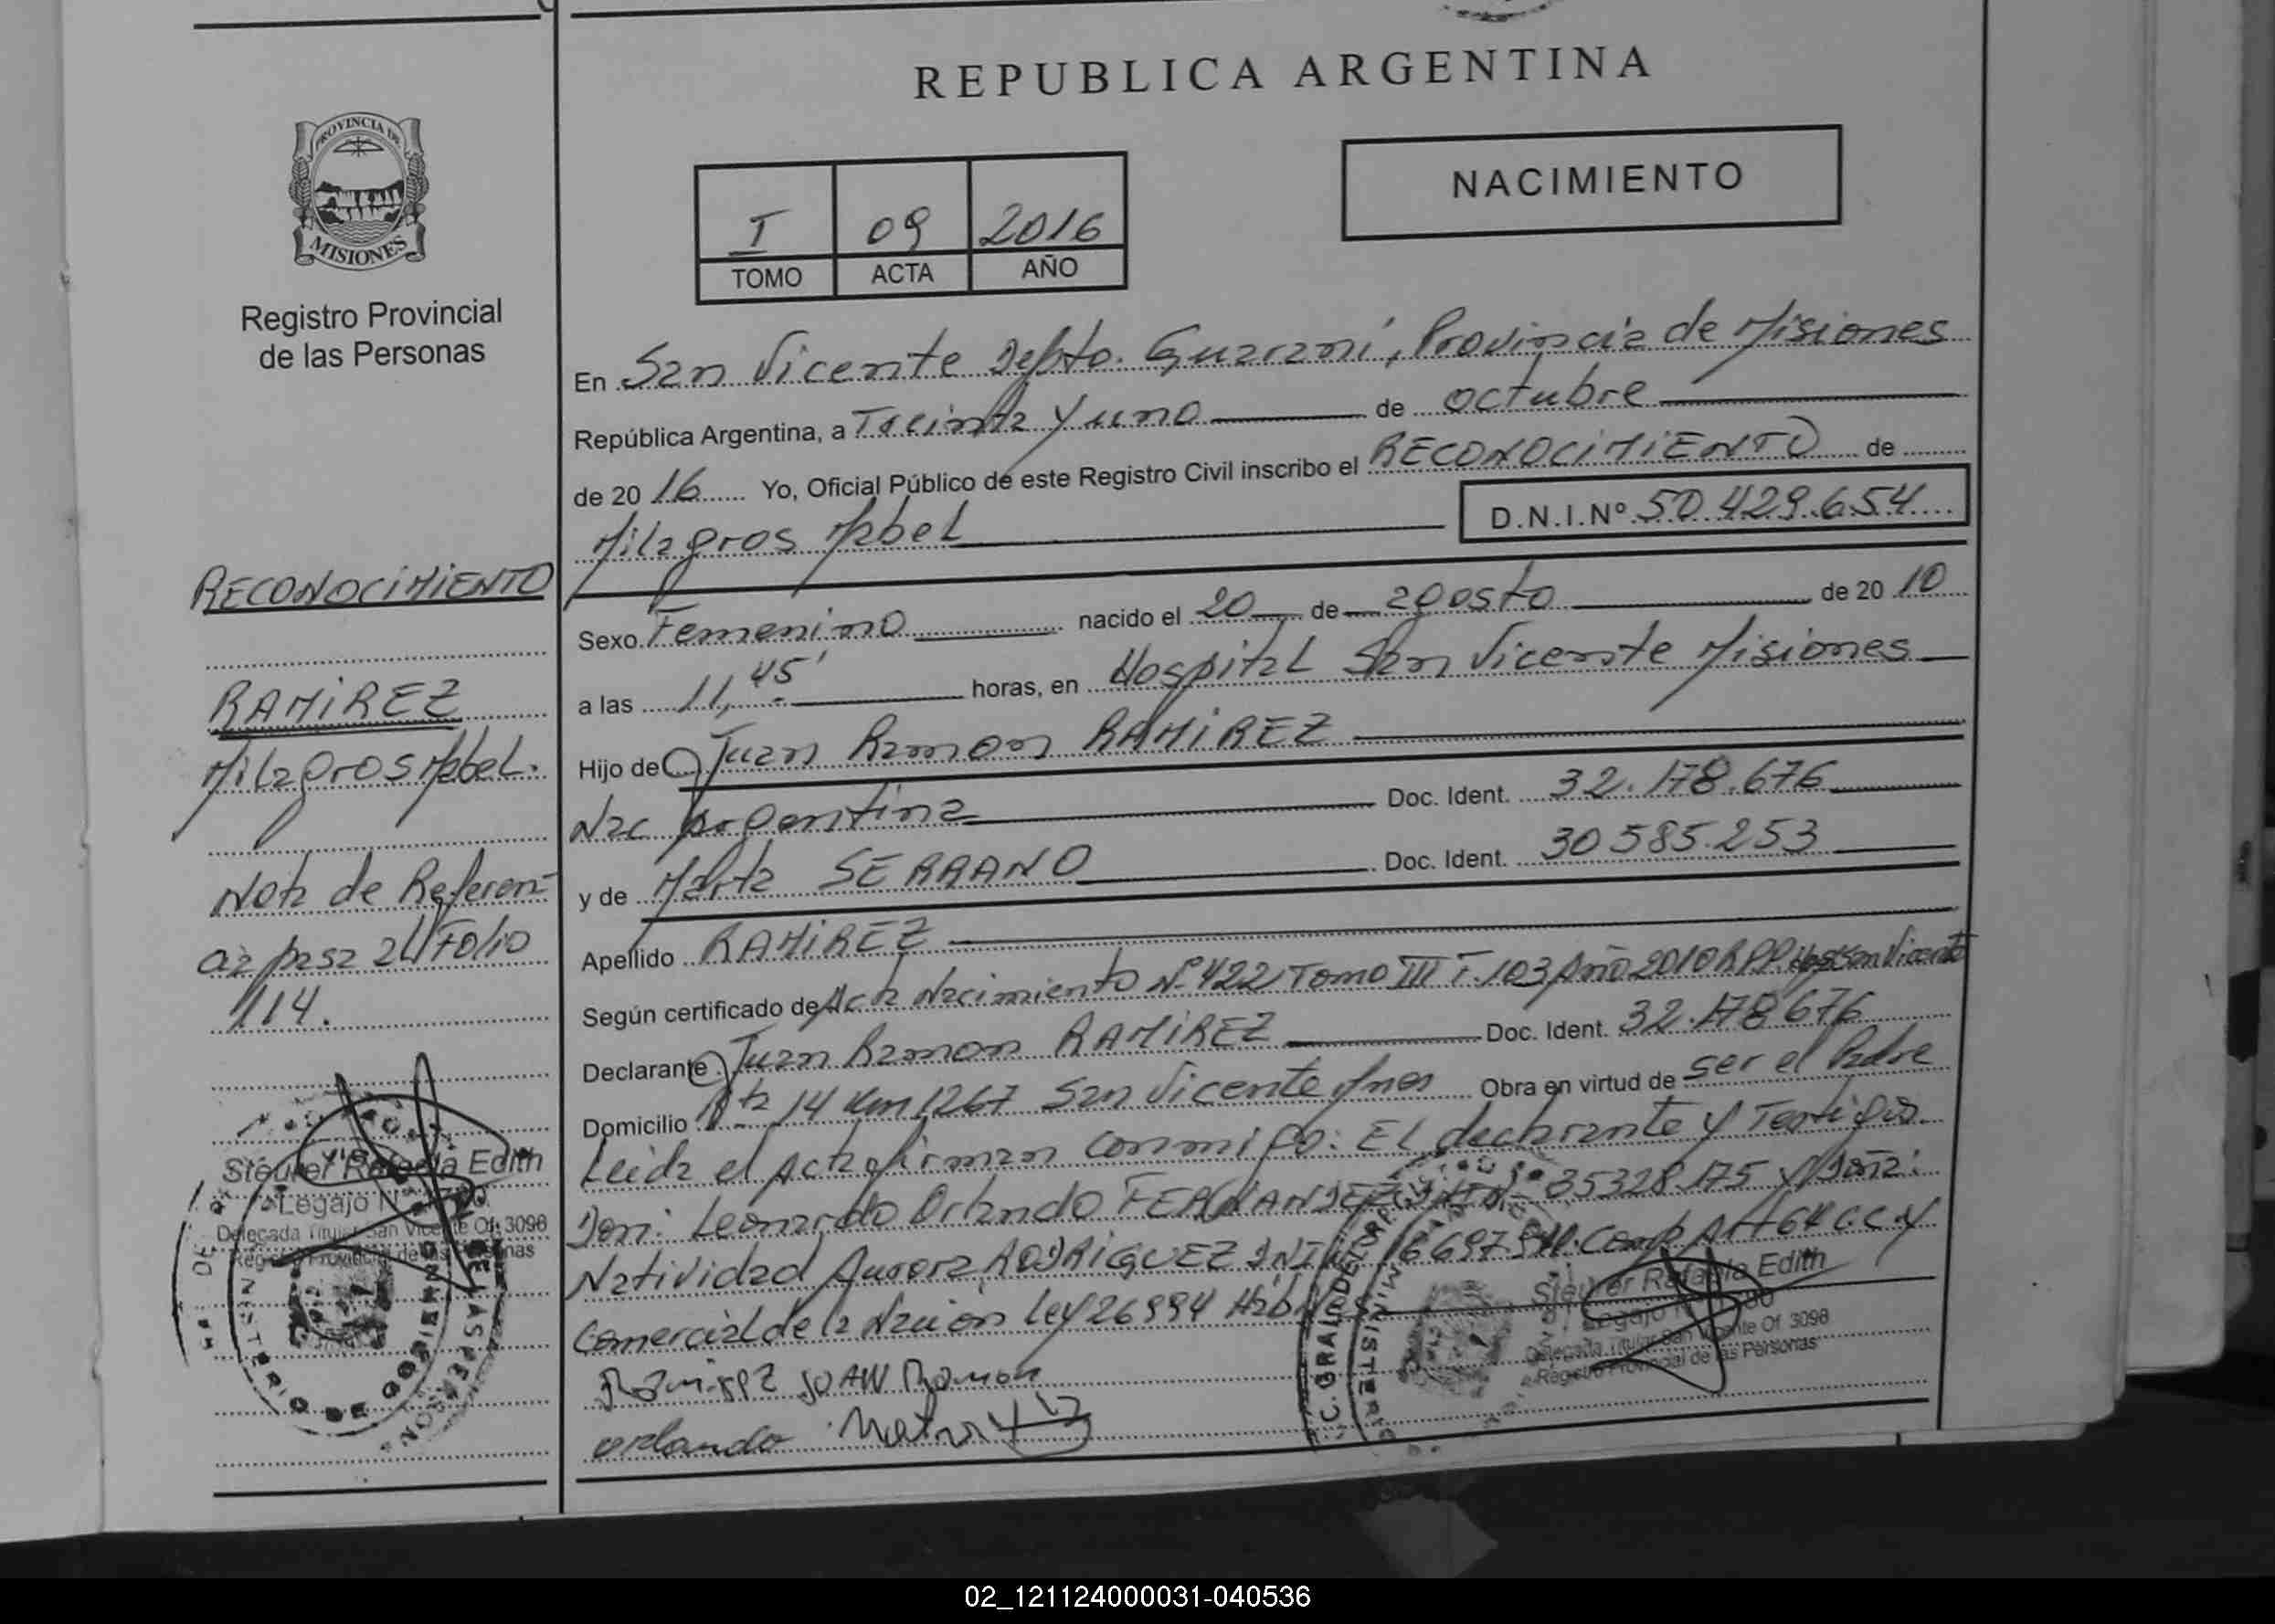 REPUBLICA ARGENTINA
NACIMIENTO
I 09 2016
TOMO ACTA AÑO
PROVINCIA DE
MISIONES
Registro Provincial
de las Personas
RECONOCIMIENTO
RAMIREZ
Milagros Mabel.
Nota de Referen-
cia pasa al Folio
114.
Steuer Rafaela Edith
Legajo N°
Delegada Titular San Vicente Of. 3098
Registro Provincial de las Personas
En San Vicente Depto. Guaraní, Provincia de Misiones
República Argentina, a Treinta y uno de octubre
de 20 16 Yo, Oficial Público de este Registro Civil inscribo el RECONOCIMIENTO de
Milagros Mabel D.N.I.Nº 50.429.654
Sexo Femenino nacido el 20 de agosto de 20 10
a las 11,45' horas, en Hospital San Vicente Misiones
Hijo de Juan Ramon RAMIREZ
Nac Argentina Doc. Ident. 32.178.676
y de Marta SERRANO Doc. Ident. 30 585.253
Apellido RAMIREZ
Según certificado de Acta Nacimiento Nº 422 Tomo III F. 103 Año 2010 RPP Hosp San Vicente
Declarante Juan Ramon RAMIREZ Doc. Ident. 32.178 676
Domicilio Rta 14 Km 1267 San Vicente Mnes Obra en virtud de ser el Padre
Leida el Acta firman conmigo: El declarante y Testigos
Don: Leonardo Orlando FERNANDEZ DNI Nº 35328.175 y Doña:
Natividad Aurora RODRIGUEZ DNI Comp. Art 64 C.C. y
Comercial de la Nación Ley 26994
Ramirez JUAN Ramon
orlando
Steuer Rafaela Edith
Legajo N°
Delegada Titular San Vicente Of. 3098
Registro Provincial de las Personas
02_121124000031-040536